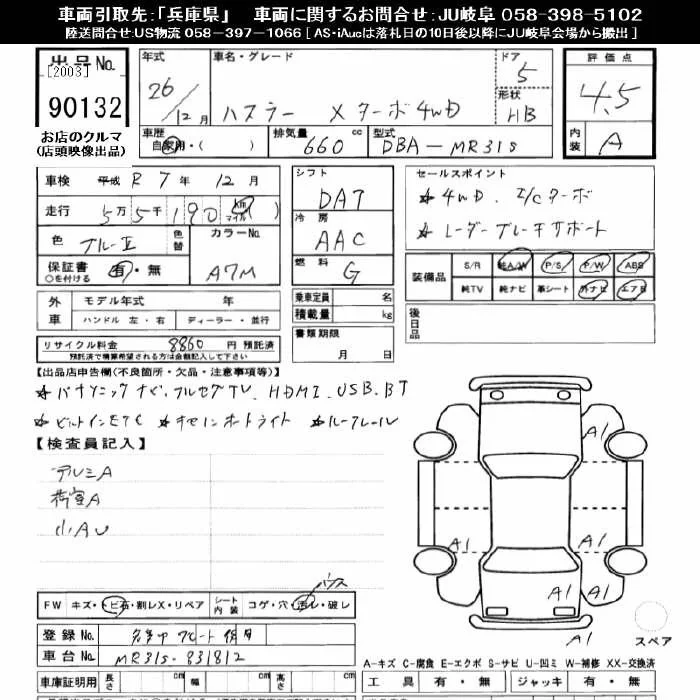 車両引取先:「兵庫県」 車両に関するお問合せ:JU岐阜 058-398-5102
陸送問合せ:US物流 058-397-1066 [ AS・iAucは落札日の10日後以降にJU岐阜会場から搬出 ]
出品No. [2003]
90132
お店のクルマ
(店頭映像出品)
年式 26/12月
車名・グレード ハスラー X ターボ4WD
ドア 5
形状 HB
評価点 4.5
内装 A
車歴 自家用・( )
排気量 660 cc
型式 DBA-MR31S
車検 平成 R 7年 12月
走行 5万5千190 km マイル ( )
色 ブルーⅡ 色替
カラーNo. A7M
保証書 有・無
○を付ける
シフト DAT
冷房 AAC
燃料 G
セールスポイント
★4WD I/Cターボ
★レーダーブレーキサポート
装備品 S/R 純A/W P/S P/W ABS
純TV 純ナビ 革シート 外ナビ エアB
外車 モデル年式 年
ハンドル 左・右 ディーラー・並行
乗車定員 名
積載量 kg
後日品
リサイクル料金 8860 円 預託済
預託済で精算希望される方は金額記入して下さい
書類期限 月 日
【出品店申告欄(不良箇所・欠品・注意事項等)】
★パナソニックナビ.フルセグTV.HDMI.USB.BT
★ビルトインETC ★ ートライト ★ルーフレール
【検査員記入】
アルミA
荷室A
小AU
A1
A1
A1
A1
A1
A1
スペア
FW キズ・トビ石・割レX・リペア
シート内装 コゲ・穴・汚レ・破レ
登録No.
車台No. MR31S-831812
A-キズ C-腐食 E-エクボ S-サビ U-凹ミ W-補修 XX-交換済
車庫証明用 長さ cm 幅 cm 高さ cm
工具 有・無 ジャッキ 有・無